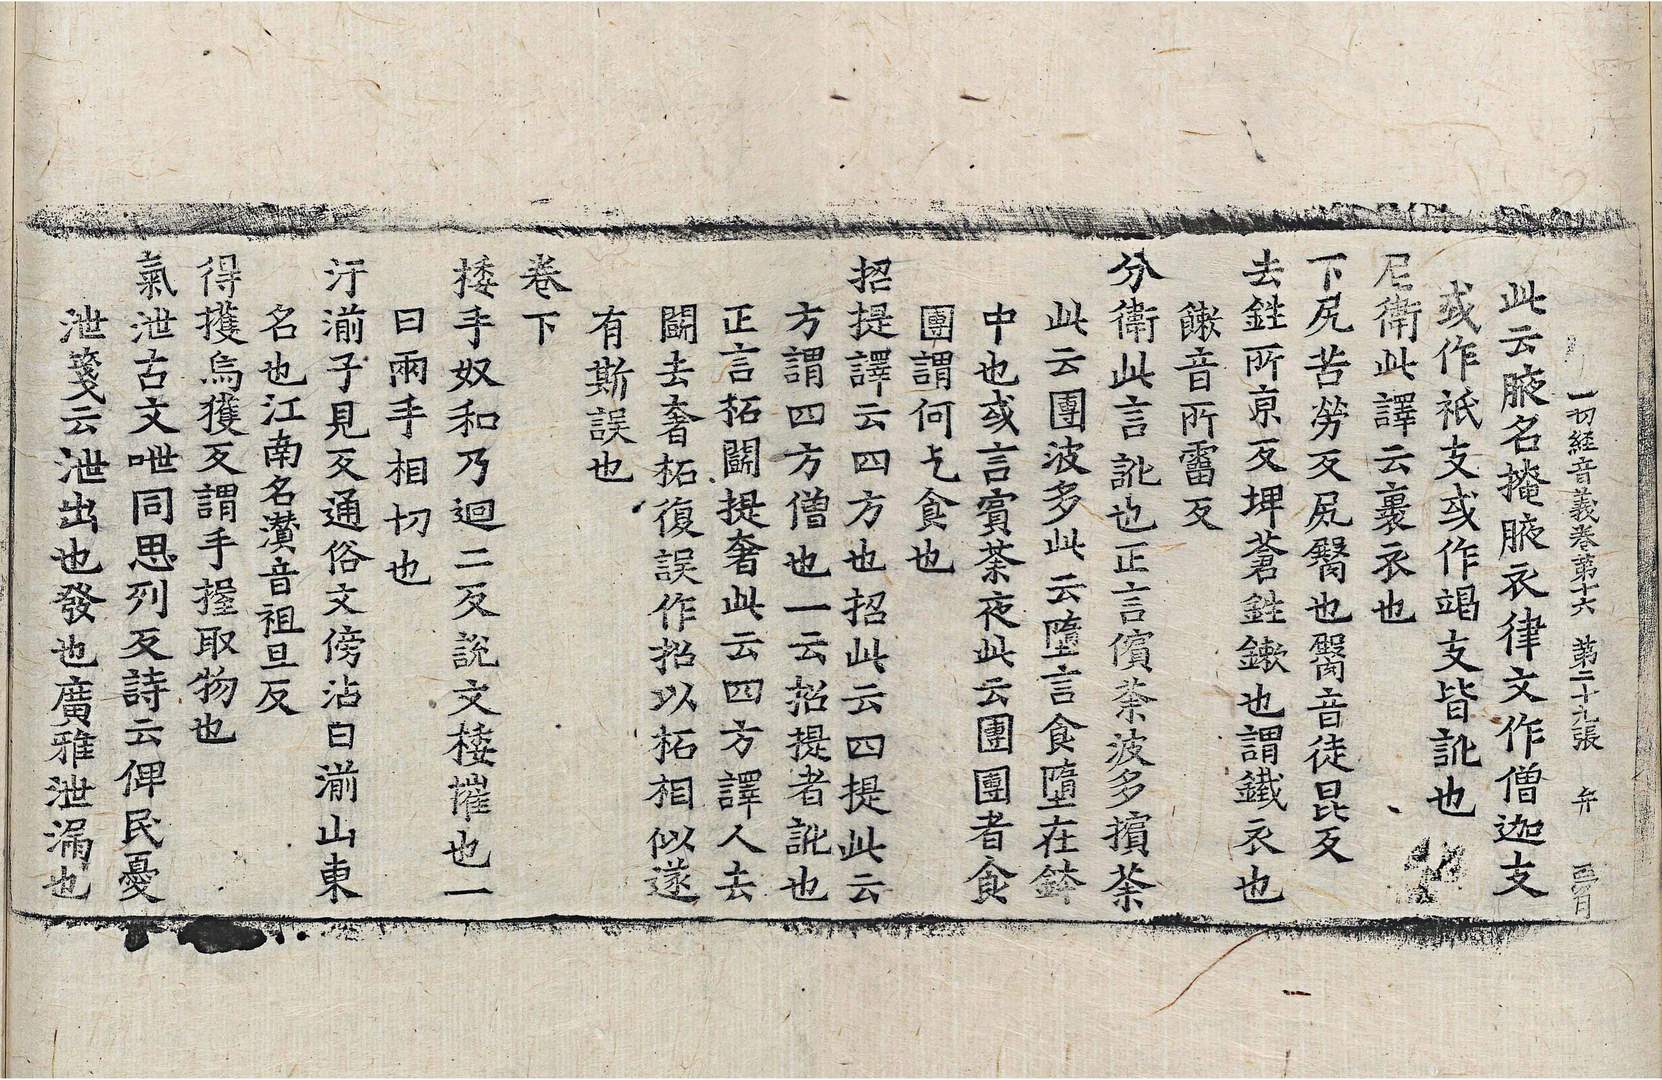 一切經音義卷第十六 第二十九張 弁
此云腋名掩腋衣律文作僧迦支
或作祇支或作竭支皆訛也
尼衛此譯云裏衣也
下尻苦勞反尻臋也臋音徒昆反
去鉎所京反埤蒼鉎鏉也謂鐵衣也
鏉音所霤反
分衛此言訛也正言儐荼波多擯荼
此云團波多此云墮言食墮在鉢
中也或言賓荼夜此云團團者食
團謂何乞食也
招提譯云四方也招此云四提此云
方謂四方僧也一云招提者訛也
正言柘鬪提奢此云四方譯人去
鬪去奢柘復誤作招以柘相似遂
有斯誤也
卷下
捼手奴和乃迴二反說文捼摧也一
曰兩手相切也
汙湔子見反通俗文傍沾曰湔山東
名也江南名灒音祖旦反
得擭烏獲反謂手握取物也
氣泄古文呭同思列反詩云俾民憂
泄箋云泄出也發也廣雅泄漏也